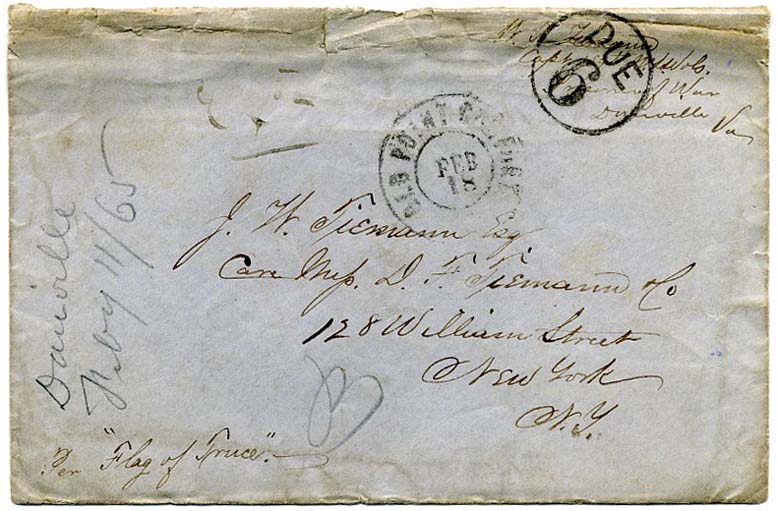 Capt
Prisoner of War
Danville Va
DUE
6
OLD POINT COMFORT
FEB
18
J. W. Tiemann Esq
Care Mess. D. F. Tiemann & Co
128 William Street
New York
N.Y.
Per "Flag of Truce".
Danville
Feby 11/65